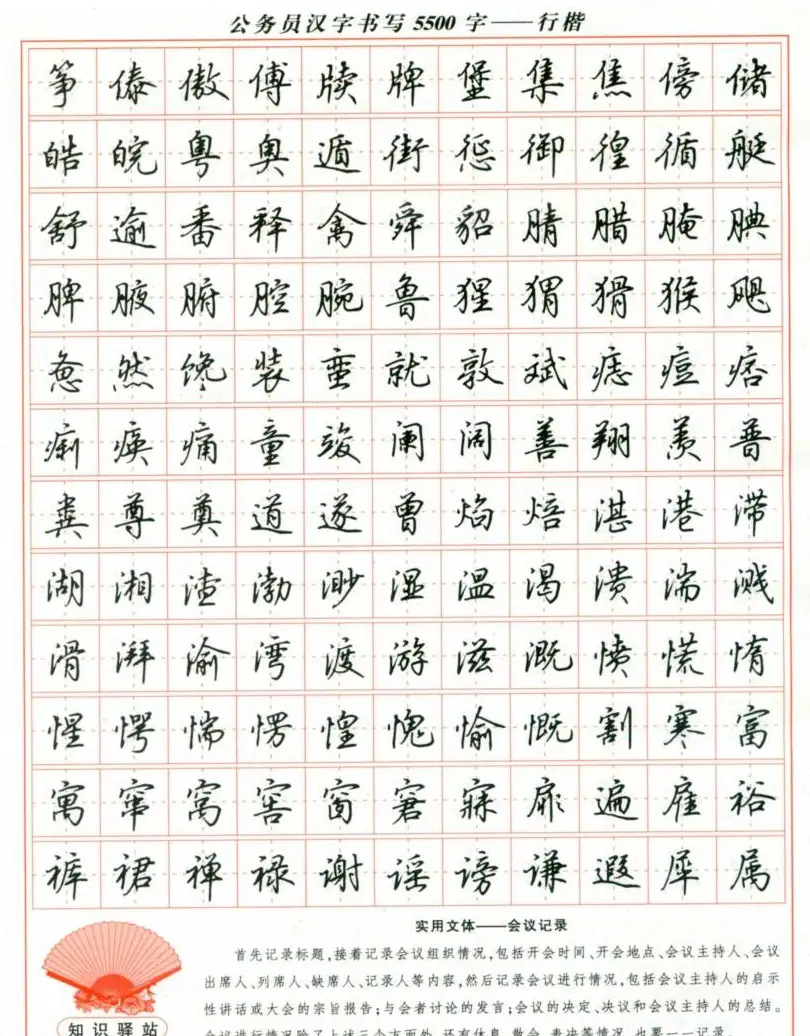 公务员汉字书写5500字——行楷
筝傣傲傅牍牌堡集焦傍储
皓皖粤奥遁街惩御徨循艇
舒逾番释禽舜貂腈腊腌腆
脾腋腑腔腕鲁猩猬猾猴飓
惫然馋装蛮就敦斌痣痘痞
痢痪痛童竣阑阔善翔羡普
粪尊奠道遂曾焰焙湛港滞
湖湘渣渤渺湿温渴溃湍溅
滑湃渝湾渡游滋溉愤慌惰
惺愕惴愣惶愧愉慨割寒富
寓窜窝窖窗窘寐扉遍雇裕
裤裙禅禄谢谣谤谦遐犀属
实用文体——会议记录
首先记录标题,接着记录会议组织情况,包括开会时间、开会地点、会议主持人、会议
出席人、列席人、缺席人、记录人等内容,然后记录会议进行情况,包括会议主持人的启示
性讲话或大会的宗旨报告;与会者讨论的发言;会议的决定、决议和会议主持人的总结。
知识驿站
会议进行情况除了上述三个方面外,还有休息、散会、表决等情况,也要一一记录